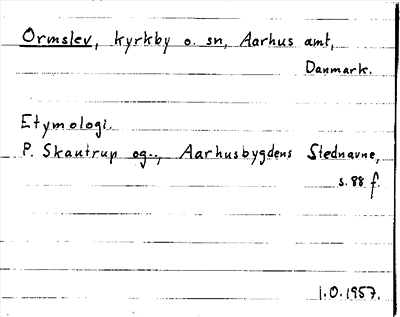 Ormslev, kyrkby o. sn, Aarhus amt,
Danmark.
Etymologi.
P. Skautrup og.., Aarhusbygdens Stednavne,
s. 88 f.
i.O.1957.